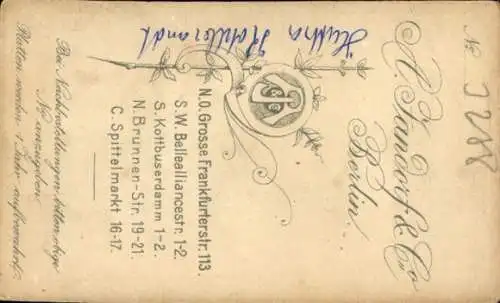 No 3288
A. Jandorf & Co
Berlin
N.O. Grosse Frankfurterstr. 113.
S.W. Bellealliancestr. 1-2.
S. Kottbuserdamm 1-2.
N. Brunnen-Str. 19-21.
C. Spittelmarkt 16-17.
Bei Nachbestellungen bitten obige
No anzugeben.
Platten werden 1 Jahr aufbewahrt.